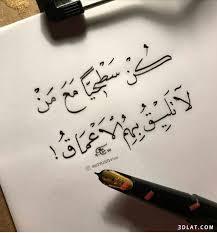 كُنْ سَطْحِيًّا مَعَ مَنْ
لَا تَلِيقُ بِهِمُ الْأَعْمَاقُ !
3DLAT.COM